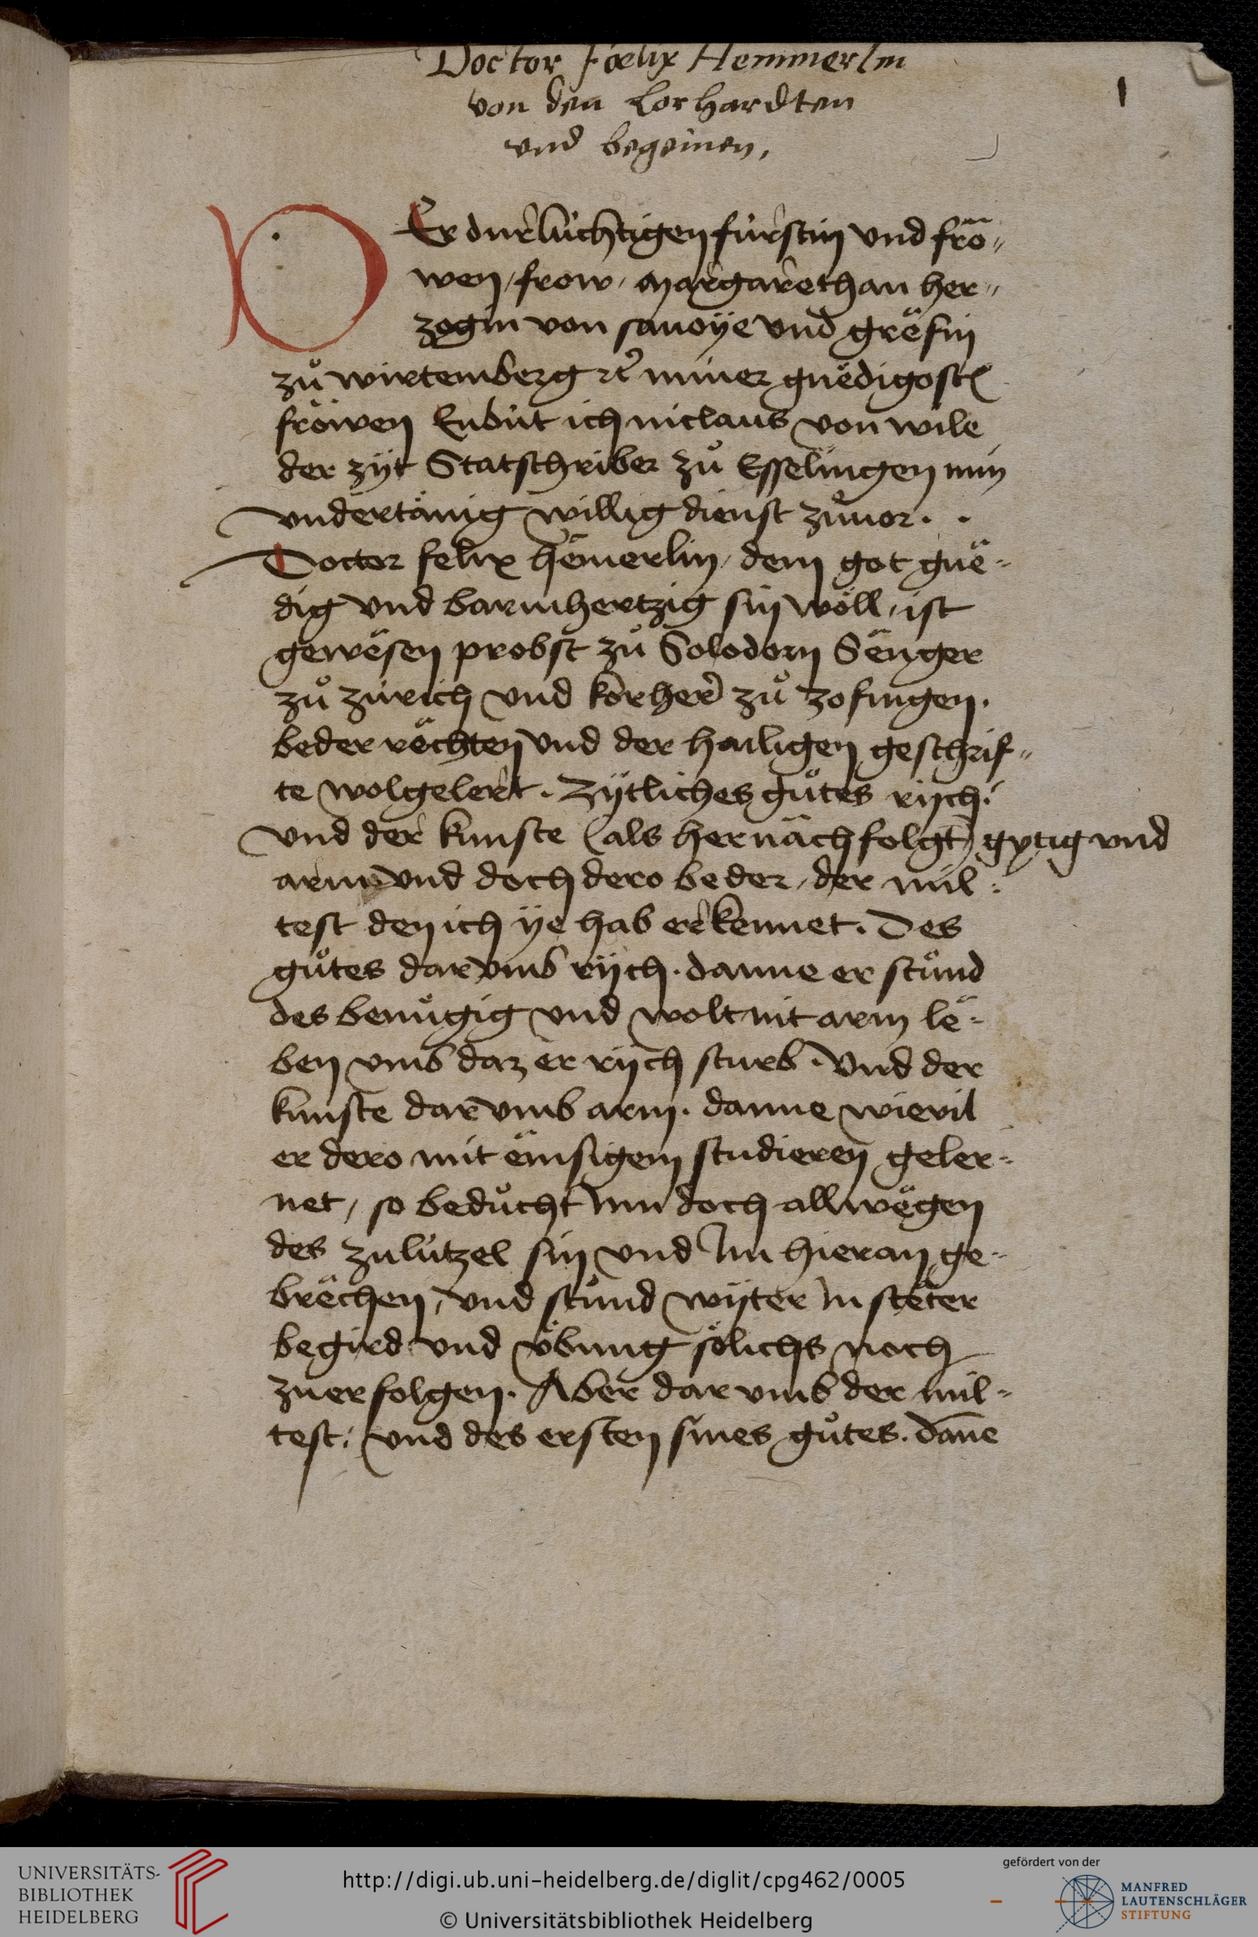 Doctor Fœlix Hemmerlin
von den Lorhardten
vnd begeinen,
1
DEr durlüchtigen fürstin vnd frö„
wen / frow / margarethan her„
zogin von sauoÿe vnd gräfin
zů wirtemberg ꝛc miner gnëdigostē
fröwen Enbüt ich niclaus von wile
der zÿt Statschriber zů Esselingen min
vndertänig willig dienst zůuor. .
Doctor felix hëmerlin / dem got gnë-
dig vnd barmhertzig sin wöll / ist
gewësen probst zů Solodorn Sënger
zů zürich vnd korher zů zofingen.
beder rëchten vnd der hailigen geschrif„
te wolgelert. Zÿtliches gůtes rijch.
vnd der kunste (als hernäch folgt) gytig vnd
arm vnd doch dero beder / der mil:
test den ich ÿe hab erkennet. Des
gůtes darvmb rijch. danne er stůnd
des benůgig vnd wolt nit arm lë-
ben vmb daz er rijch sturb. Vnd der
kunste darvmb arm. danne wievil
er dero mit ëmsigem studieren geler-
net / so bedůcht Im doch allwëgen
des zulützel sin vnd Im hieran ge-
brëchen / vnd stůnd wÿter In stëter
begird vnd übung sölichs noch
zuerfolgen. Aber darvmb der mil-
test: vnd des ersten sines gůtes. dañe
UNIVERSITÄTS-
BIBLIOTHEK
HEIDELBERG
http://digi.ub.uni-heidelberg.de/diglit/cpg462/0005
© Universitätsbibliothek Heidelberg
gefördert von der
MANFRED
LAUTENSCHLÄGER
STIFTUNG